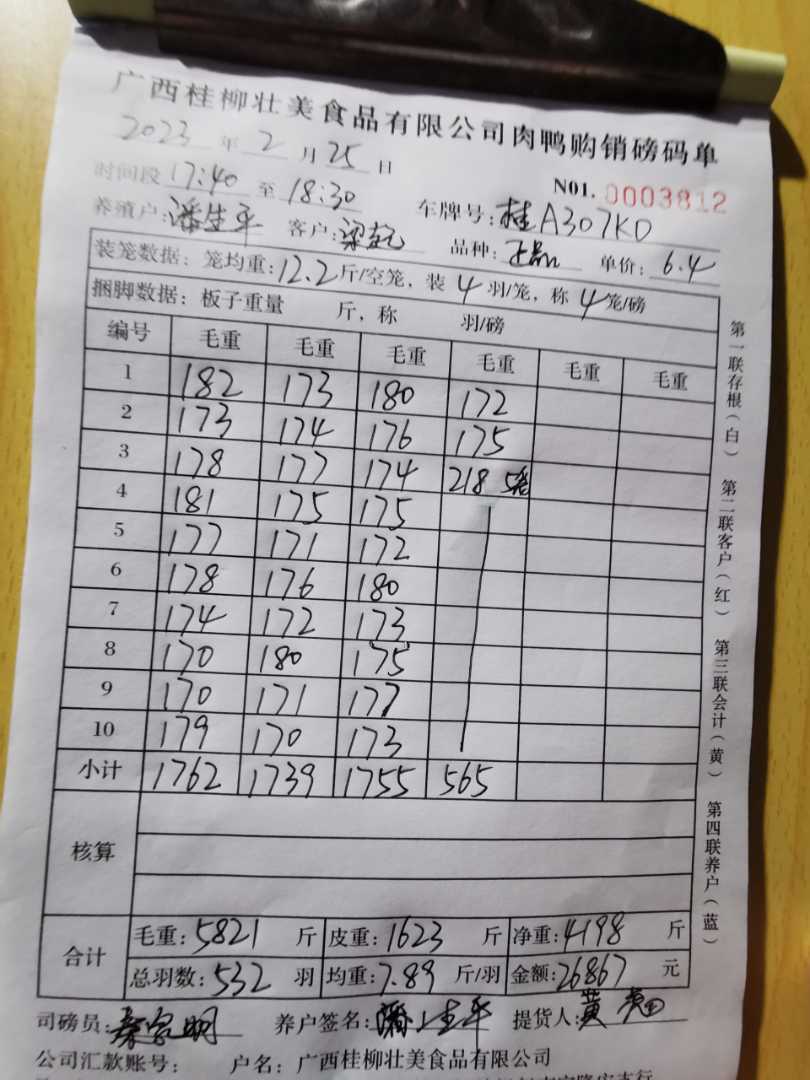 广西桂柳壮美食品有限公司肉鸭购销磅码单
2023 年 2 月 25 日
时间段 17:40 至 18:30 N01. 0003812
养殖户: 潘生平 客户: 车牌号: 桂A307KD
品种: 正品 单价: 6.4
装笼数据: 笼均重: 12.2 斤/空笼, 装 4 羽/笼, 称 4 笼/磅
捆脚数据: 板子重量 斤, 称 羽/磅
编号 毛重 毛重 毛重 毛重 毛重 毛重
1 182 173 180 172
2 173 174 176 175
3 178 177 174 218 5笼
4 181 175 175
5 177 171 172
6 178 176 180
7 174 172 173
8 170 180 175
9 170 171 177
10 179 170 173
小计 1762 1739 1755 565
核算
合计 毛重: 5821 斤 皮重: 1623 斤 净重: 4198 斤
总羽数: 532 羽 均重: 7.89 斤/羽 金额: 26867 元
司磅员: 养户签名: 潘生平 提货人: 黄
公司汇款账号: 户名: 广西桂柳壮美食品有限公司
第一联存根(白) 第二联客户(红) 第三联会计(黄) 第四联养户(蓝)